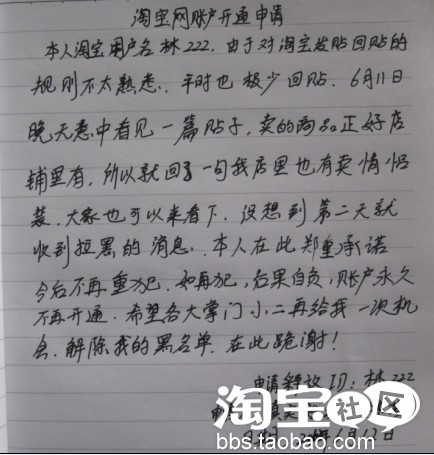 淘宝网账户开通申请
本人淘宝用户名林222,由于对淘宝发贴回贴的
规则不太熟悉.平时也极少回贴.6月11日
晚无意中看见一篇贴子,卖的商品正好店
铺里有,所以就回了一句我店里也有卖情侣
装,大家也可以来看下.没想到第二天就
收到拉黑的消息.本人在此郑重承诺
今后不再重犯.如再犯,后果自负,账户永久
不再开通.希望各大掌门小二再给我一次机
会,解除我的黑名单.在此跪谢!
申请释放ID:林222
6月12日
淘宝社区
bbs.taobao.com